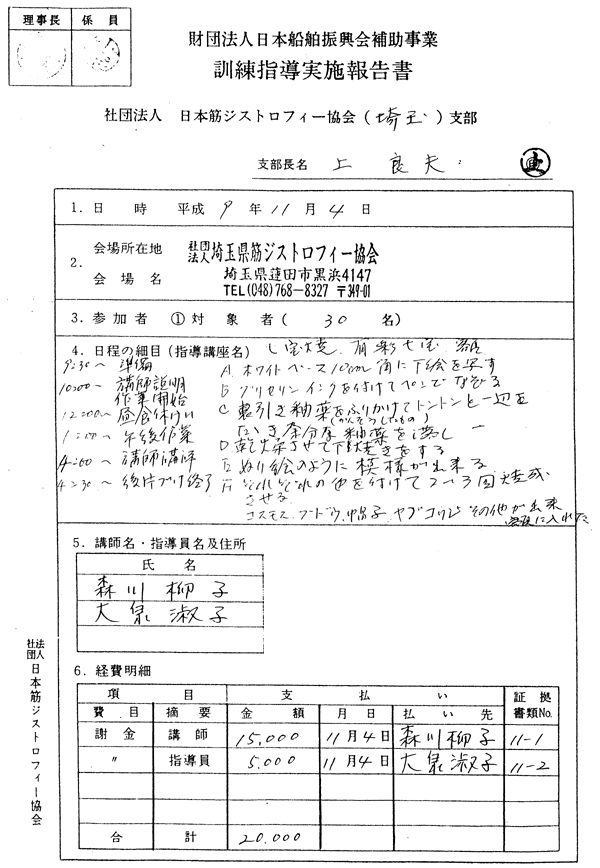 理事長 係員
財団法人日本船舶振興会補助事業
訓練指導実施報告書
社団法人 日本筋ジストロフィー協会(埼玉)支部
支部長名 上 良夫
1. 日 時 平成 9 年 11 月 4 日
2. 会場所在地
会 場 名
社団法人 埼玉県筋ジストロフィー協会
埼玉県蓮田市黒浜4147
TEL(048)768-8327 〒349-01
3. 参加者 ①対 象 者( 30 名)
4. 日程の細目(指導講座名) 七宝焼 有彩七宝
9:30〜 準備
10:00〜 講師説明
作業開始
12:00〜 昼食休けい
1:00〜 午後作業
4:00〜 講師講評
4:30〜 後片づけ終了
A. ホワイトベース10cm角に下絵を写す
B グリセリンインクを付けてペンでなぞる
C 裏引き釉薬をふりかけてトントンと一辺を
たいき余分な釉薬を落し
D 乾燥させて下焼きをする
E ぬり絵のように模様が出来る
F それぞれの色を付けて2〜3回焼成
させる
コスモス、ブドウ、 ヤブコウジ その他が出来
に入れた
5. 講師名・指導員名及住所
氏 名
森川柳子
大泉淑子
6. 経費明細
項 目 支 払 い 証拠書類No.
費 目 摘 要 金 額 月 日 払 い 先
謝 金 講 師 15,000 11月4日 森川柳子 11-1
〃 指導員 5,000 11月4日 大泉淑子 11-2
合 計 20,000
社団法人 日本筋ジストロフィー協会